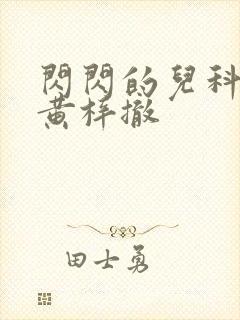 閃閃的兒科
黃梓撤
田士勇